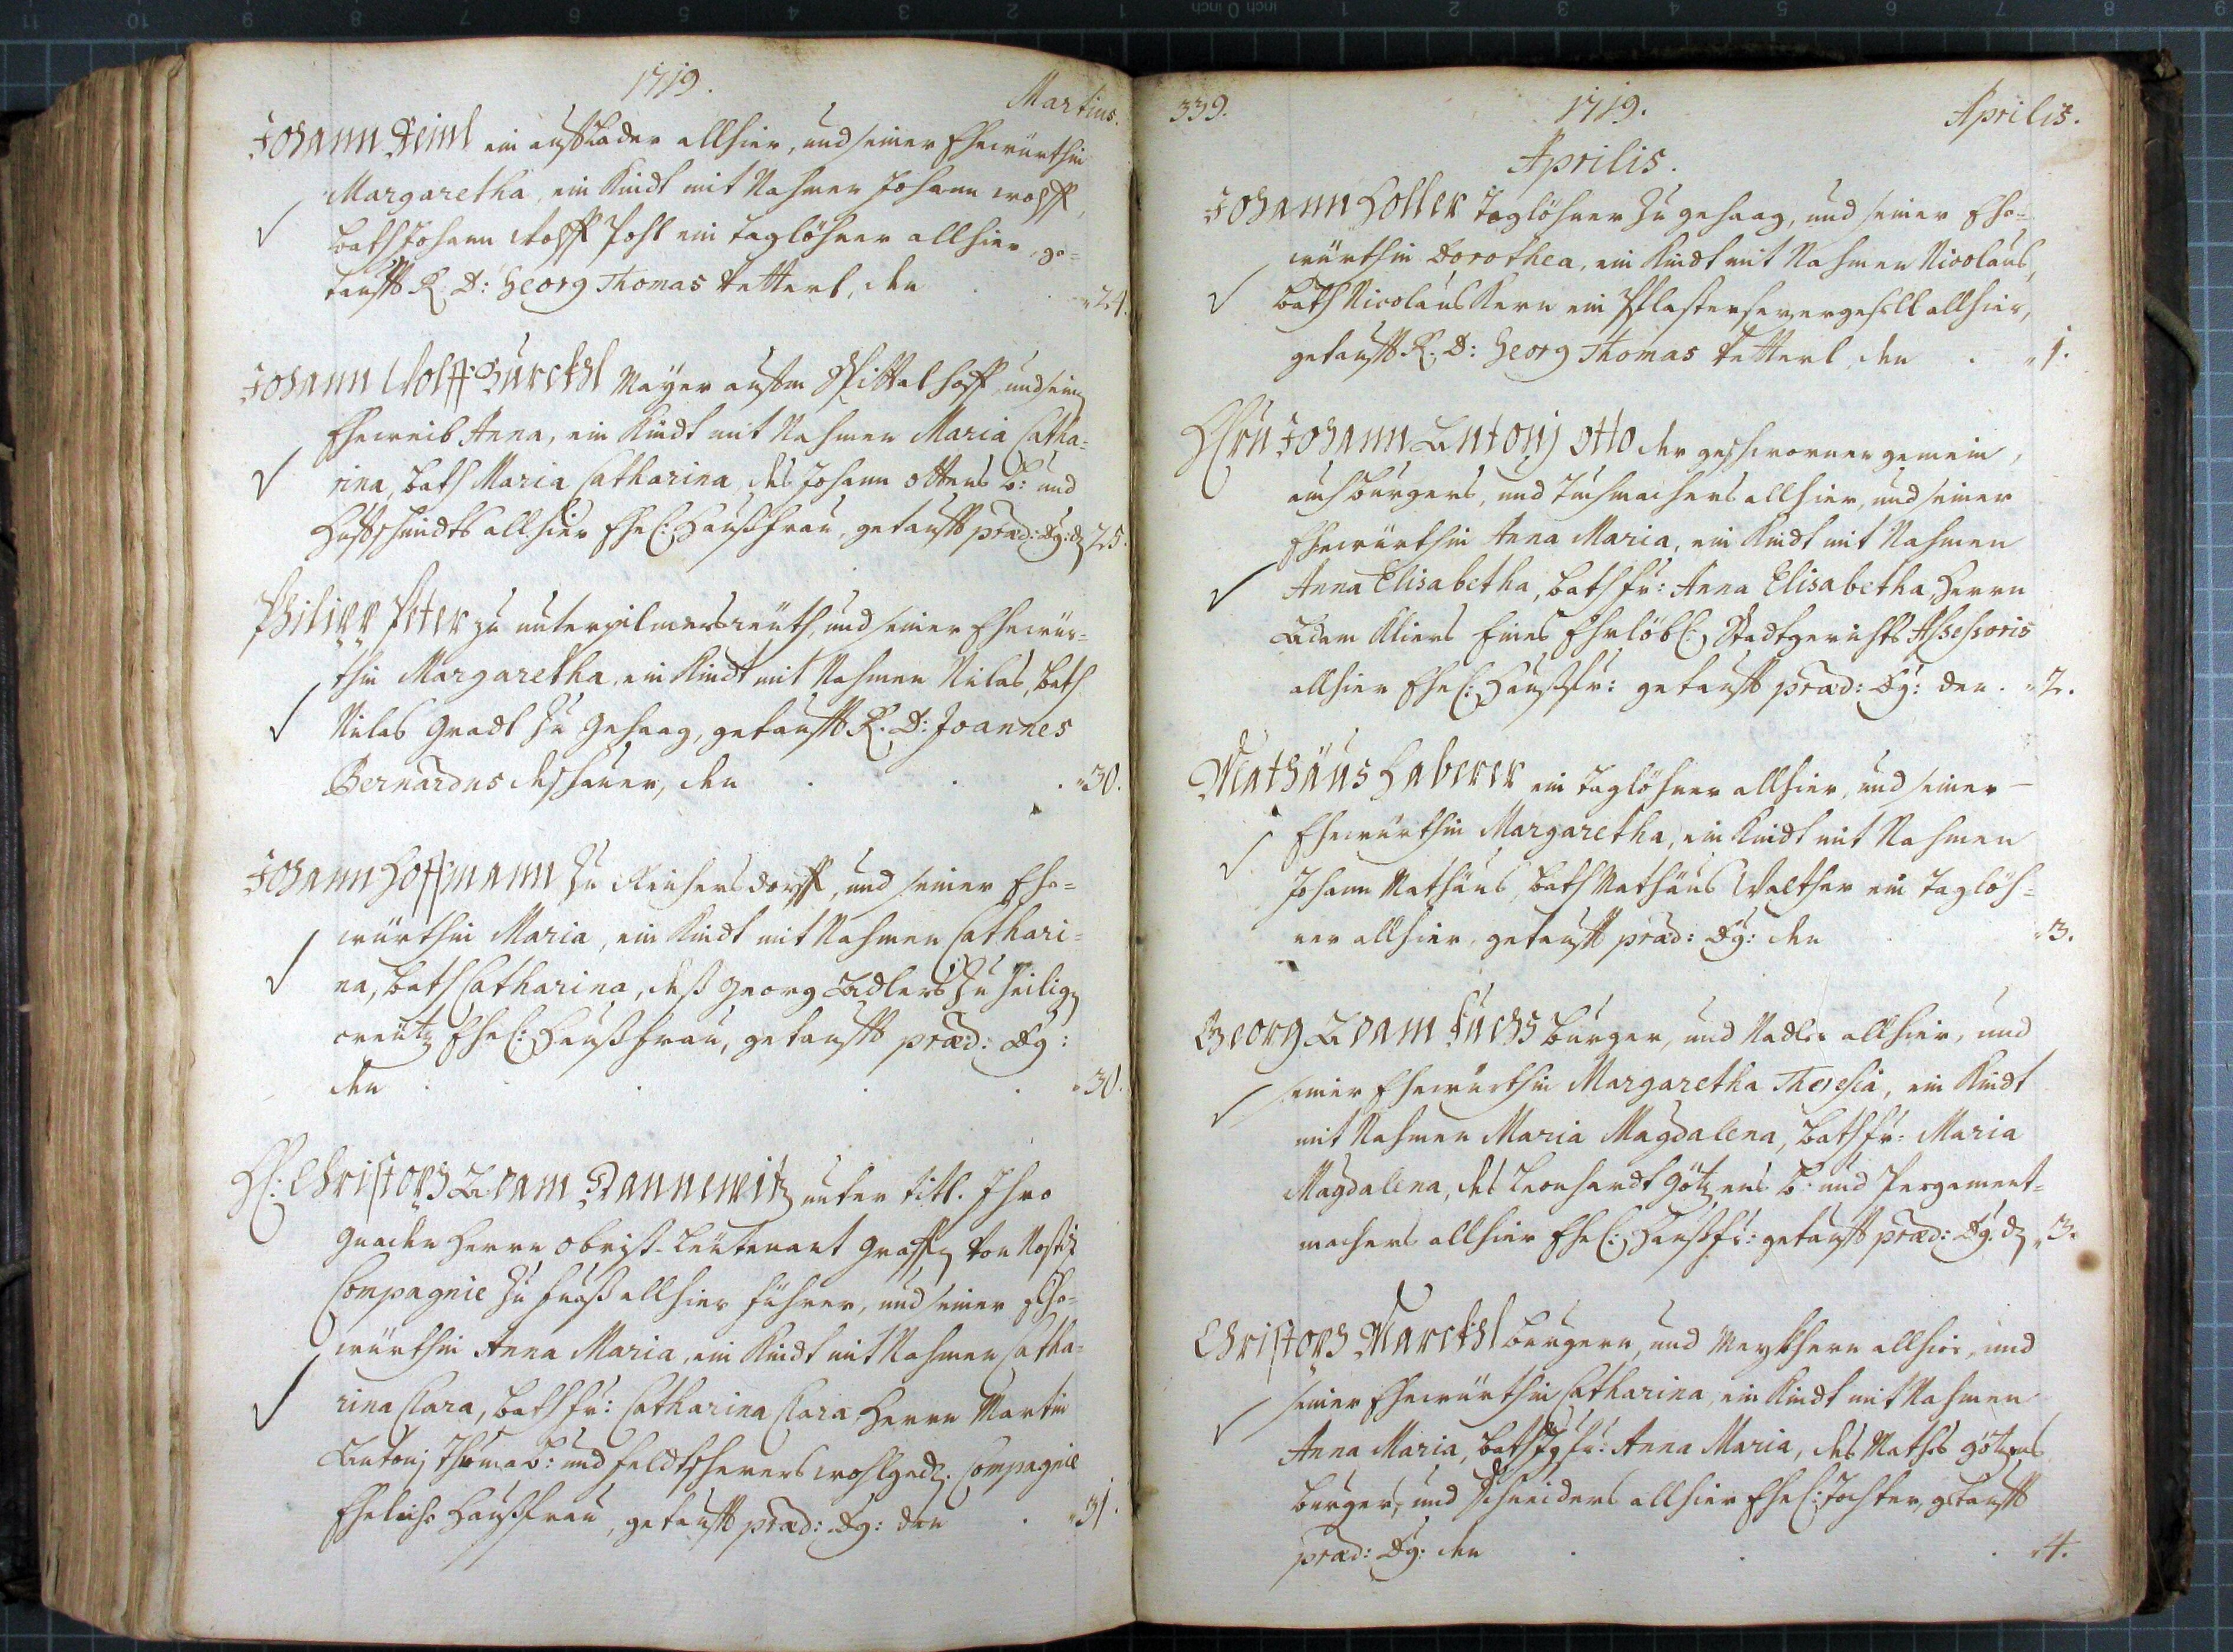 11 10 9 8 7 6 5 4 3 2 1 inch 0 inch 1 2 3 4 5 6 7 8 9
1719.
Martius.
Johann Deinl ein aufflader allhier, und seiner Ehewürthin
Margaretha, ein Kindt mit Nahmen Johann wolff,
bath Johann Wolff Pohl ein taglöhner allhier, ge=
taufft R. D: Georg Thomas Vetterl, den . . "24.
Johann Wolff Bürckhl Mäyer aufm Spittalhoff, und sein
Eheweib Anna, ein Kindt mit Nahmen Maria Catha=
rina, bath Maria Catharina, des Johann Ottens b: und
Huffschmidts allhier Ehel: Haußfrau, getaufft præd: Dg: d 25.
Philipp Peter zu unterpilmersreüth, und seiner Ehewür=
thin Margaretha, ein Kindt mit Nahmen Niclas, bath
Niclas Gradl zu Gehaag, getaufft R. D: Joannes
Bernardus , den . . . "30.
Johann Hoffmann zu Reichersdorff, und seiner Ehe=
würthin Maria, ein Kindt mit Nahmen Cathari=
na, bath Catharina, deß Georg Adlers zu heilig
creütz Ehel: Haußfrau, getaufft præd: Dg:
den . . . . "30.
H: Christoph Adam Dannewitz unter titl. Ihro
Gnaden Herrn Obrist-Leütenant Graffen von Nostitz
Compagnie zu fueß allhier führer, und seiner Ehe=
würthin Anna Maria, ein Kindt mit Nahmen Catha=
rina Clara, bath fr: Catharina Clara, Herrn Martin
Antonj Thoma b: und feldtscherers wohlged. Compagnie
Eheliche Haußfrau, getaufft præd: Dg: den . "31.
339.
1719.
Aprilis.
Aprilis.
Johann Holler Taglöhner zu gehaag, und seiner Ehe=
würthin Dorothea, ein Kindt mit Nahmen Nicolaus,
bath Nicolaus Kern ein Pflasterer gesell allhier,
getaufft R. D: Georg Thomas Vetterl, den . "1.
Hrn Johann Antonj Otto der geschworner gemein,
auch burgers, und Tuchmachers allhier, und seiner
Ehewürthin Anna Maria, ein Kindt mit Nahmen
Anna Elisabetha, bath fr: Anna Elisabetha, Herrn
Adam Kliers Eines Ehrlöbl: Stadtgerichts Assessoris
allhier Ehel: Haußfr: getaufft præd: Dg: den . "2.
Mathäus Haberer ein taglöhner allhier, und seiner
Ehewürthin Margaretha, ein Kindt mit Nahmen
Johann Mathäus, bath Mathäus Walther ein Taglöh=
ner allhier, getaufft præd: Dg: den . "3.
Georg Adam Fuchs burger, und Nadler allhier, und
seiner Ehewürthin Margaretha Theresia, ein Kindt
mit Nahmen Maria Magdalena, bath fr: Maria
Magdalena, des Leonhardt Götzens b: und Pergament=
machers allhier Ehel: Haußfr: getaufft præd: Dg: d "3.
Christoph Marckhl burgern, und allhier, und
seiner Ehewürthin Catharina, ein Kindt mit Nahmen
Anna Maria, bath Jgfr: Anna Maria, des Mathes Götzens
burger, und Schneiders allhier Ehel: Tochter, getaufft
præd: Dg: den . . . "4.